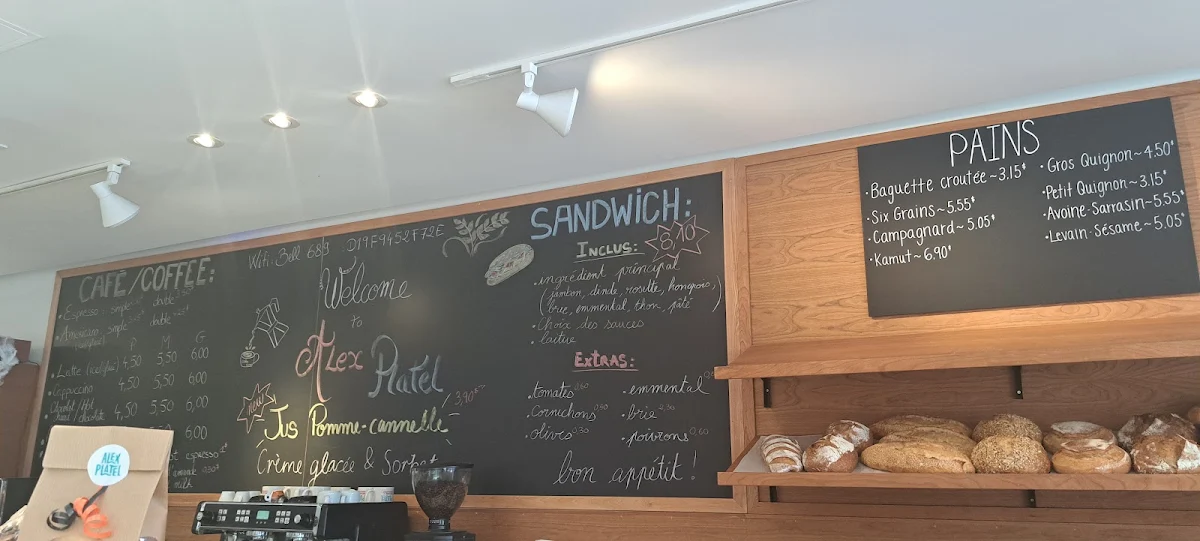 CAFÉ/COFFEE:
Espresso: single double
Americano: single double
P M G
Latte 4,50 5,50 6,00
Cappuccino 4,50 5,50 6,00
Chocolat 4,50 5,50 6,00
6,00
espresso
Wifi: Bell 689 D19F9452F72E
Welcome
to
Alex Platel
new
Jus Pomme-cannelle 3,90
Crème glacée & Sorbet
SANDWICH:
INCLUS: 8,10$
• ingrédient principal
(jambon, dinde, rosette, hongrois,
brie, emmental, thon, pâté)
• Choix des sauces
• laitue
EXTRAS:
• tomates 0,60 • emmental
• Cornichons • brie
• olives 0.30 • poivrons 0,60
bon appétit!
PAINS
• Baguette croutée ~ 3.15$
• Six Grains ~ 5.55$
• Campagnard ~ 5.05$
• Kamut ~ 6.90$
• Gros Quignon ~ 4.50$
• Petit Quignon ~ 3.15$
• Avoine-Sarrasin - 5.55$
• Levain-Sésame ~ 5.05$
ALEX
PLATEL